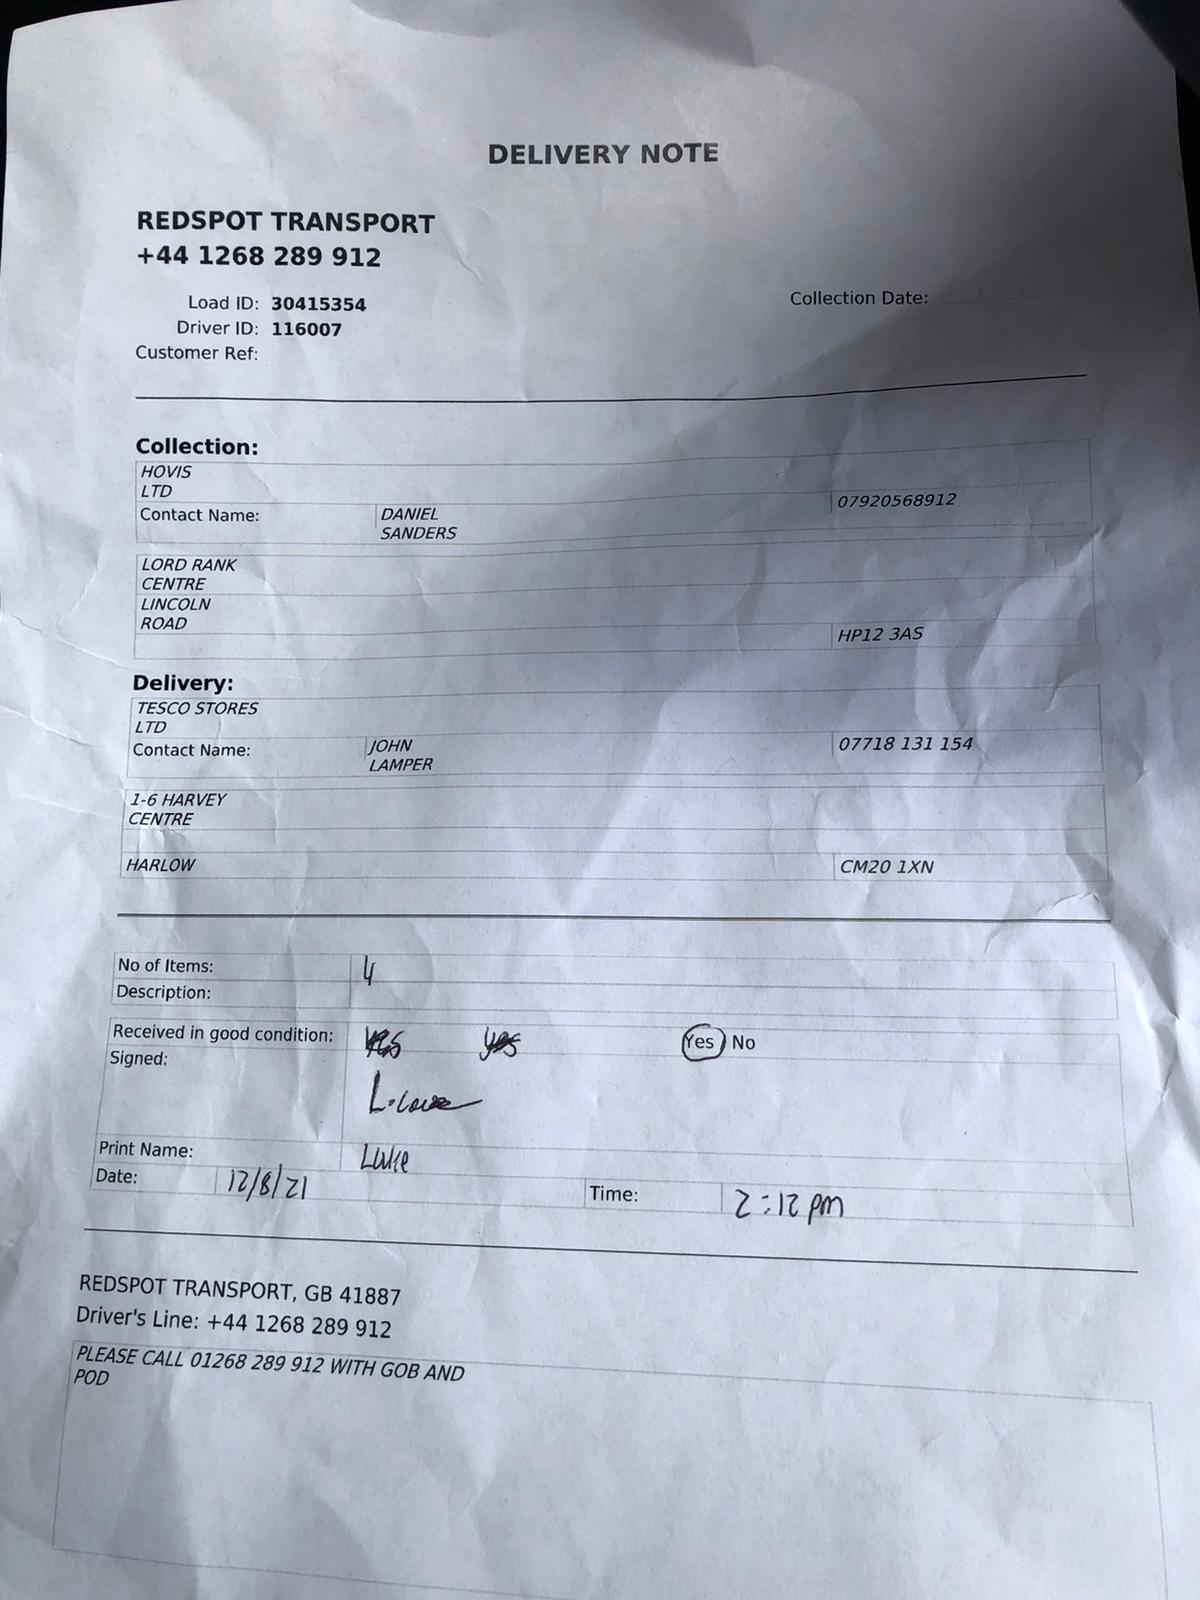 DELIVERY NOTE
REDSPOT TRANSPORT
+44 1268 289 912
Load ID: 30415354
Collection Date:
Driver ID: 116007
Customer Ref:
Collection:
HOVIS
LTD
Contact Name: DANIEL SANDERS 07920568912
LORD RANK
CENTRE
LINCOLN
ROAD
HP12 3AS
Delivery:
TESCO STORES
LTD
Contact Name: JOHN LAMPER 07718 131 154
1-6 HARVEY
CENTRE
HARLOW CM20 1XN
No of Items: 4
Description:
Received in good condition: Yes yes Yes No
Signed:
Print Name: Luke
Date: 12/8/21 Time: 2:12 pm
REDSPOT TRANSPORT, GB 41887
Driver's Line: +44 1268 289 912
PLEASE CALL 01268 289 912 WITH GOB AND
POD